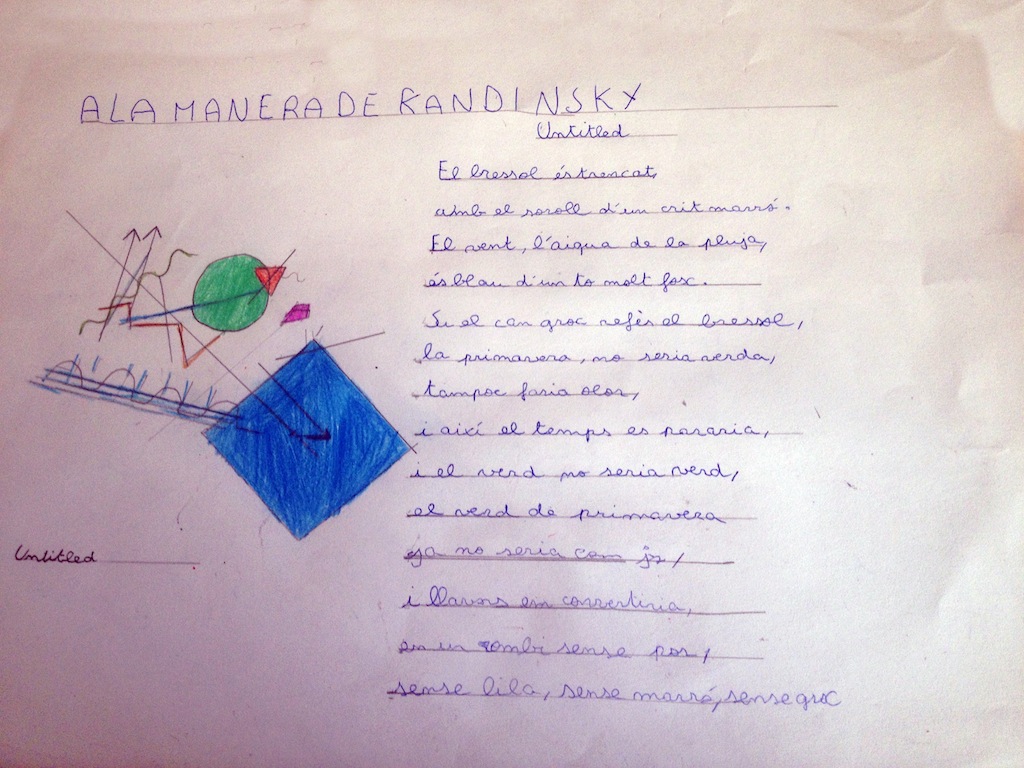 A LA MANERA DE KANDINSKY
Untitled
El bressol és trencat,
amb el soroll d'un crit marró.
El vent, l'aigua de la pluja,
és blau d'un to molt fosc.
Si el can groc refès el bressol,
la primavera, no seria verda,
tampoc faria olor,
i així el temps es pararia,
i el verd no seria verd,
el verd de primavera
ja no seria com jo,
i llavors em convertiria,
en un zombi sense por,
sense lila, sense marró, sense groc
Untitled